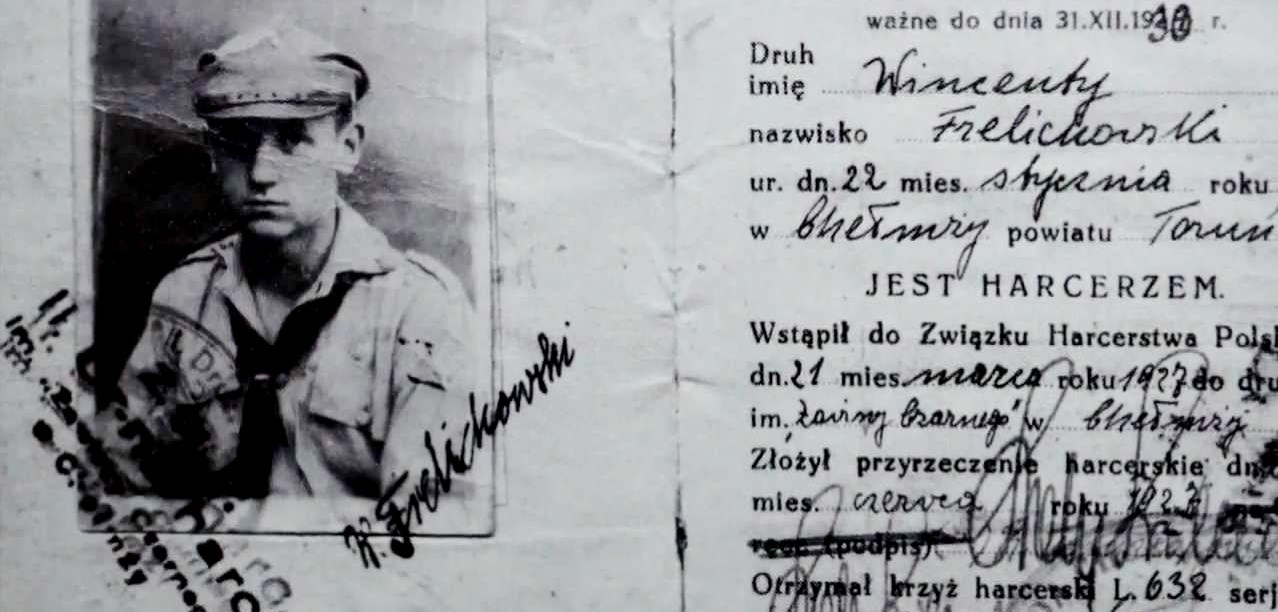 ważne do dnia 31.XII.19 r.
Druh
imię Wincenty
nazwisko Frelichowski
ur. dn. 22 mies. stycznia roku
w Chełmży powiatu Toruń
JEST HARCERZEM.
Wstąpił do Związku Harcerstwa Polsk
dn. 21 mies. marca roku 1927 do dru
im. "Zawiszy Czarnego" w Chełmży
Złożył przyrzeczenie harcerskie dn.
mies. czerwca roku 1927
(podpis)
Otrzymał krzyż harcerski L. 632 serj
W. Frelichowski
II.
im.